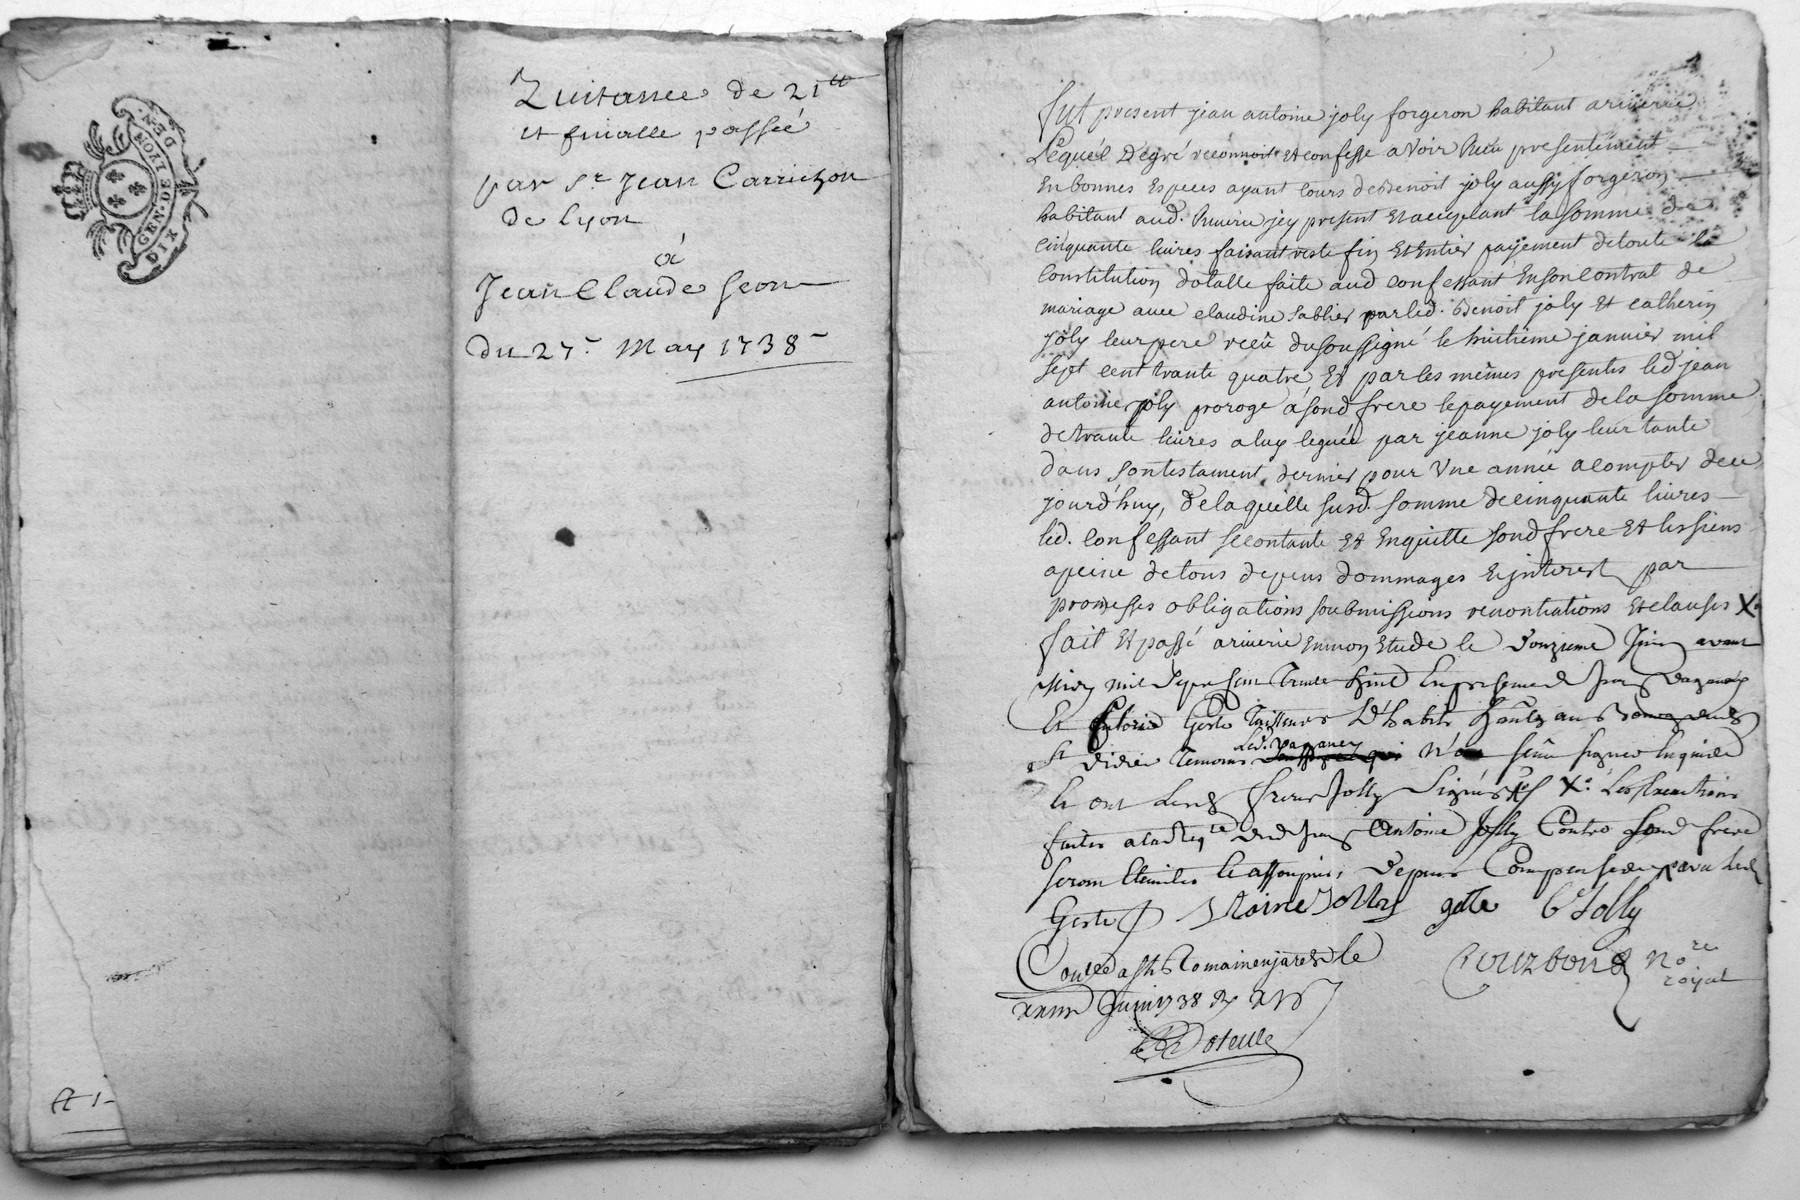 GEN. DE LYON
DIX DEN.
Quittance de 21tt
et finalle passée
par Sr Jean Carrichon
de Lyon
à
Jean Claude Geon
du 27e May 1738
A 1-
fut present jean antoine joly forgeron habitant a riverie
Lequel de gré reconnoit et confesse avoir Reçu presentement
En bonnes Especes ayant cours de Benoit joly aussy forgeron
habitant aud. Riverie jcy present et acceptant la somme de
cinquante livres faisant reste fin et Entier payement de toute la
Constitution dotalle faite aud confessant En son contrat de
mariage avec claudine sablier par led. Benoit joly et catherin
joly leur pere reçû du soussigné le huitième janvier mil
sept cent trante quatre, Et par les mêmes presentes led jean
antoine joly proroge à sond frere le payement de la somme
de trante livres a luy leguée par jeanne joly leur tante
dans son testament dernier pour Une année a compter de ce
jourd'huy, de laquelle susd. somme de cinquante livres
led. confessant se contante et En quitte sond frere et les siens
a peine de tous depens dommages Et jnterest par
promesses obligations soubmissions renontiations et clauses X.
fait et passé a riverie En mon Etude le douzieme Juin avant
Midy mil Sept Cent Trente huit En presence de
Et Geste Tailleurs D'habits au
St Didier Temoins led. vaganey n'a sceu signer Enquis
Et ont lesd freres Jolly Signés X. Les Executions
faites a la Reqte dud Jean Antoine Jolly Contre sond frere
seront Eteintes Et assoupies, depens Compensés
Geste Antoine Jolly gette B Jolly
Conlé a St Romain en jarest le
Juin 1738
Courbon Nore
royal